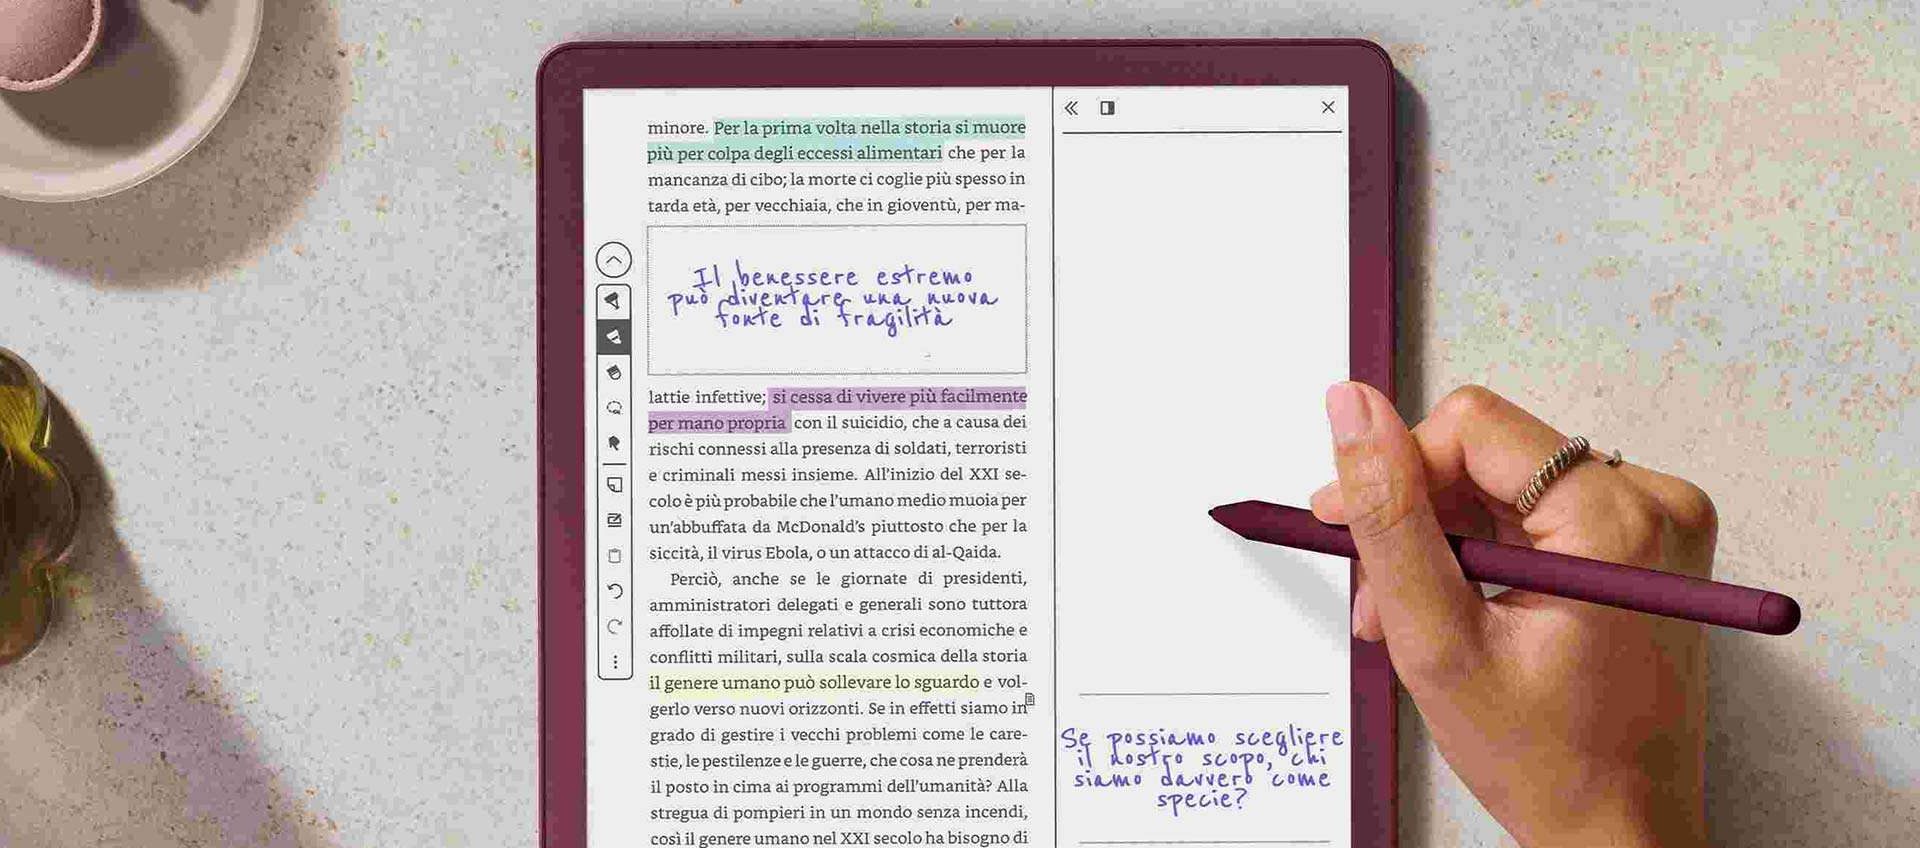 minore. Per la prima volta nella storia si muore
più per colpa degli eccessi alimentari che per la
mancanza di cibo; la morte ci coglie più spesso in
tarda età, per vecchiaia, che in gioventù, per ma-
Il benessere estremo
può diventare una nuova
fonte di fragilità
lattie infettive; si cessa di vivere più facilmente
per mano propria con il suicidio, che a causa dei
rischi connessi alla presenza di soldati, terroristi
e criminali messi insieme. All'inizio del XXI se-
colo è più probabile che l'umano medio muoia per
un'abbuffata da McDonald's piuttosto che per la
siccità, il virus Ebola, o un attacco di al-Qaida.
Perciò, anche se le giornate di presidenti,
amministratori delegati e generali sono tuttora
affollate di impegni relativi a crisi economiche e
conflitti militari, sulla scala cosmica della storia
il genere umano può sollevare lo sguardo e vol-
gerlo verso nuovi orizzonti. Se in effetti siamo in
grado di gestire i vecchi problemi come le care-
stie, le pestilenze e le guerre, che cosa ne prenderà
il posto in cima ai programmi dell'umanità? Alla
stregua di pompieri in un mondo senza incendi,
così il genere umano nel XXI secolo ha bisogno di
Se possiamo scegliere
il nostro scopo, chi
siamo davvero come
specie?